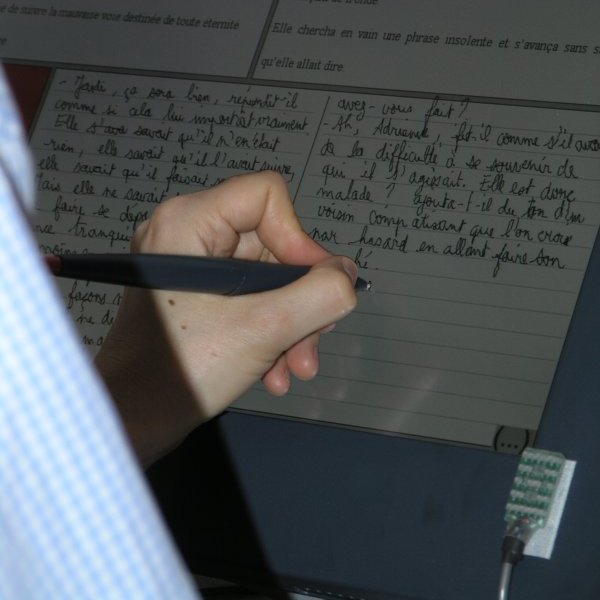 de suivre la mauvaise voie destinée de toute éternité
Elle chercha en vain une phrase insolente et s'avança sans
qu'elle allait dire.
- Jeudi, ça sera bien, répondit-il
comme si cela lui importait vraiment
Elle savait qu'il n'en était
rien, elle savait qu'il l'avait suivie,
elle savait qu'il faisait
Mais elle ne savait
faire se dép
tranqui
moins
façons
ne de
avez-vous fait ?
- Ah, Adrienne, fit-il comme s'il avait
de la difficulté à se souvenir de
qui il s'agissait. Elle est donc
malade ? ajouta-t-il du ton d'un
voisin compatissant que l'on croise
par hasard en allant faire son
hé.
(...)